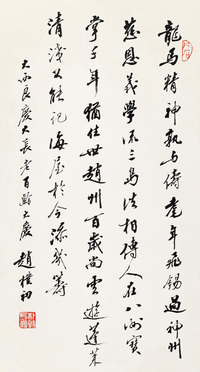 龍馬精神孰與儔耄年飛錫過神州
慈恩義學流三島法相傳人在八洲寶
掌千年猶住世趙州百歲尚雲遊蓬萊
清淺公能記海屋於今添幾籌
大西良慶大長老百齡大慶
趙樸初